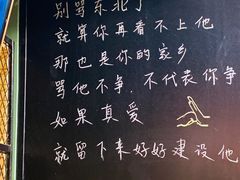 别骂东北了
就算你再看不上他
那也是你的家乡
骂他不争.不代表你争
如果真爱
就留下来好好建设他